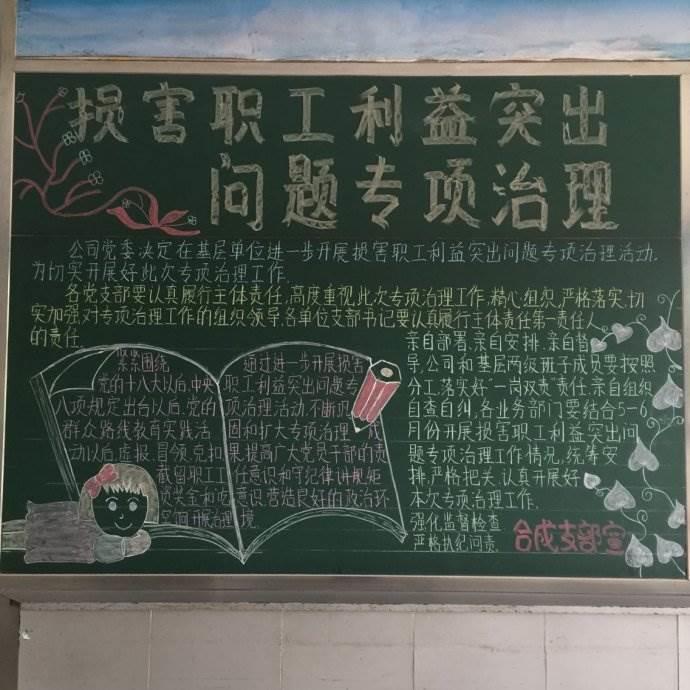 损害职工利益突出
问题专项治理
公司党委决定在基层单位进一步开展损害职工利益突出问题专项治理活动,
为切实开展好此次专项治理工作,
各党支部要认真履行主体责任,高度重视此次专项治理工作,精心组织,严格落实,切
实加强对专项治理工作的组织领导,各单位支部书记要认真履行主体责任第一责任人
的责任,
紧紧围绕
党的十八大以后,中央
八项规定出台以后,党的
群众路线教育实践活
动以后,虚报、冒领、克扣、
截留职工工
资奖金和
问题开展治理
通过进一步开展损害
职工利益突出问题专
项治理活动,不断巩
固和扩大专项治理成
果,提高广大党员干部的责
任意识和守纪律讲规矩
意识,营造良好的政治环
境.
亲自部署,亲自安排,亲自督
导,公司和基层两级班子成员要按照
分工,落实好"一岗双责"责任,亲自组织
自查自纠,各业务部门要结合5-6
月份开展损害职工利益突出问
题专项治理工作情况,统筹安
排,严格把关,认真开展好
本次专项治理工作.
强化监督检查
严格执纪问责.
合成支部宣